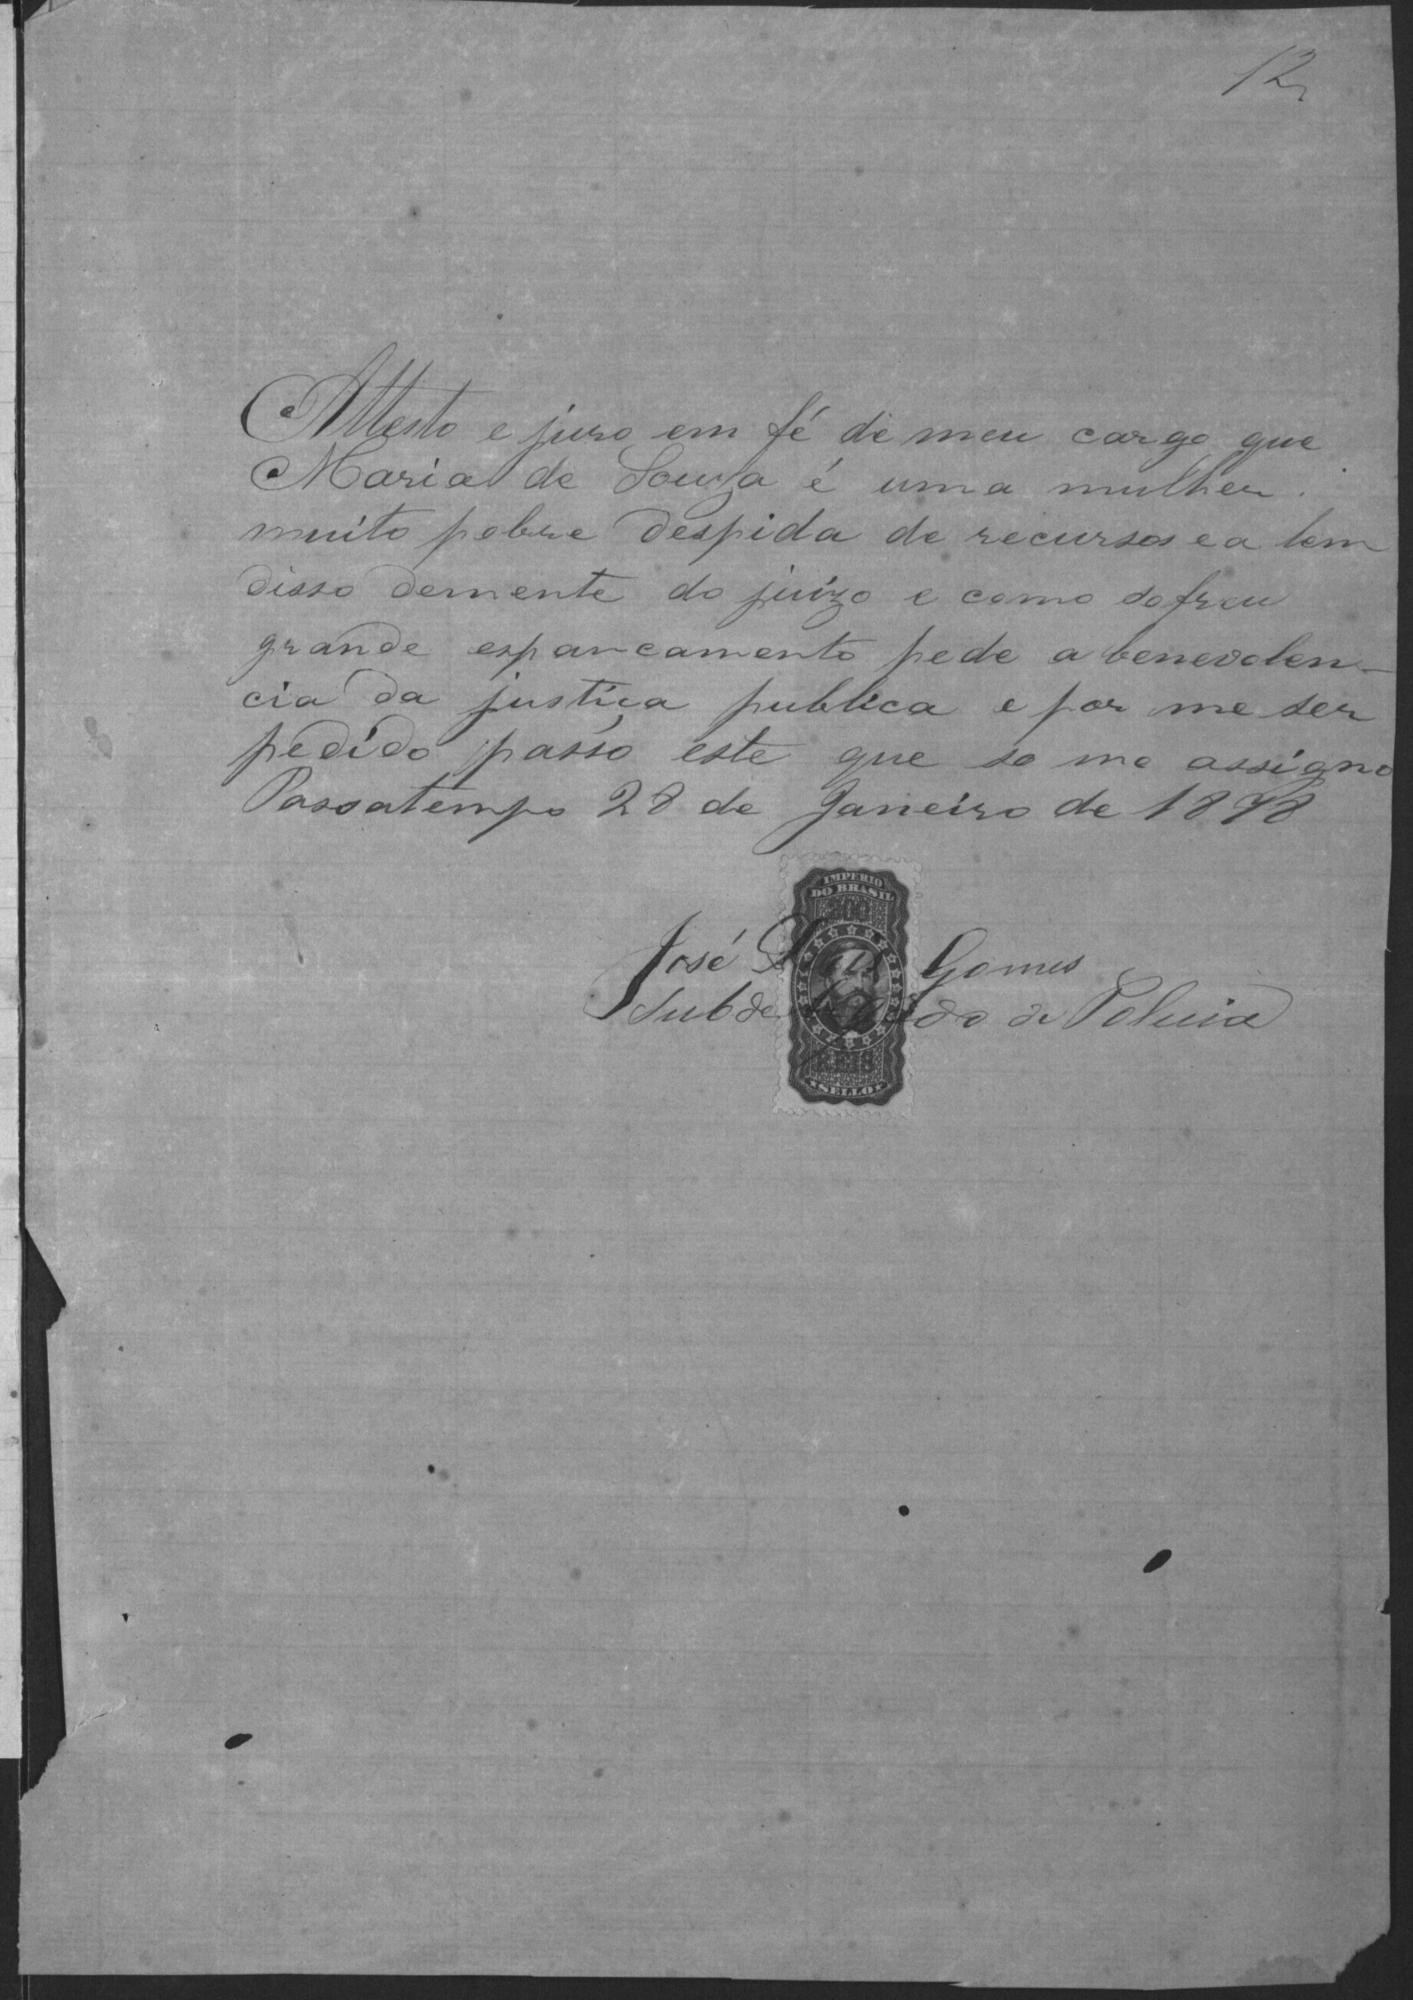 12
Attesto e juro em fé de meu cargo que
Maria de Souza é uma mulher
muito pobre despida de recursos e a lem
disso demente do juizo e como sofreu
grande espancamento pede a benevolen-
cia da justiça publica e por me ser
pedido passo este que so me assigno
Passatempo 28 de Janeiro de 1878
IMPERIO
DO BRASIL
200
José Gomes
Subdelegado de Policia
REIS
SELLO